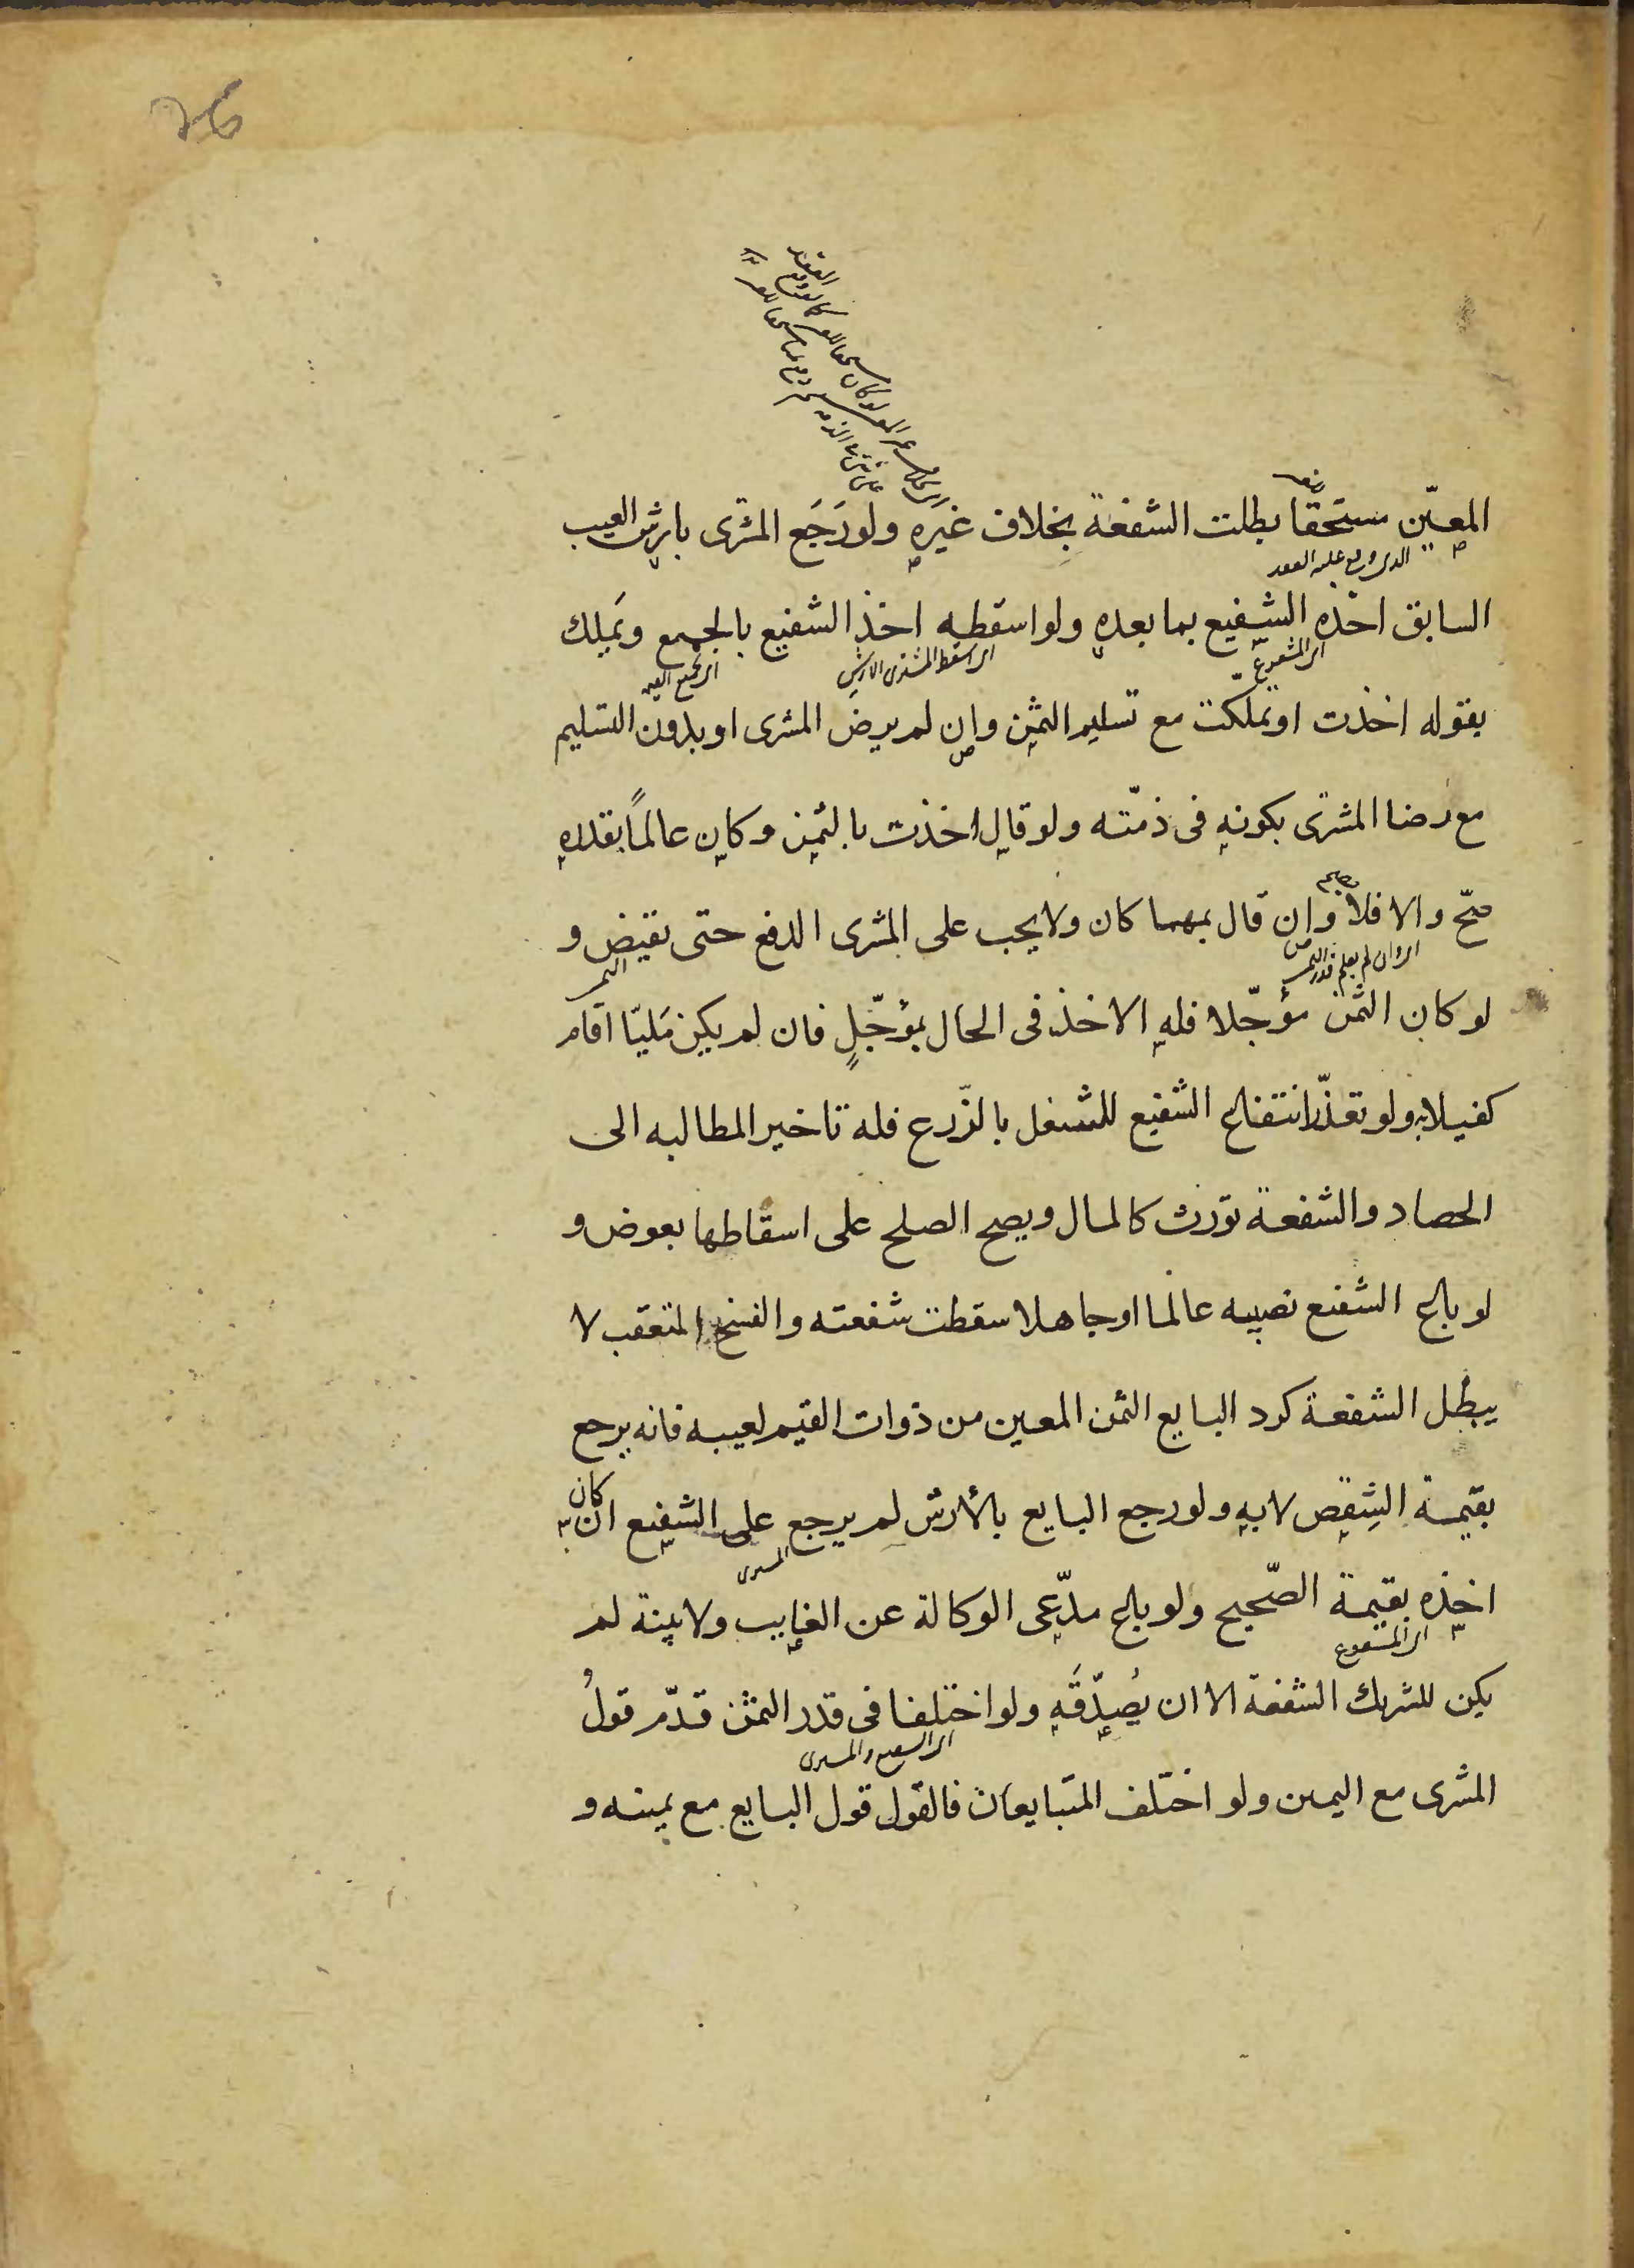 المعيّن مستحقا بطلت الشفعة بخلاف غيره ولو رَجَع المشترى بارش العيب
الذى وقع عليه العقد
السابق اخذه الشفيع بما بعده ولو اسقطه اخذ الشفيع بالجميع ويملك
اى المشفوع
اى اسقط المشترى الارش
بقوله اخذت او تملّكت مع تسليم الثمن وان لم يرض المشترى او بدون التسليم
مع رضا المشترى بكونه فى ذمّته ولو قال اخذت بالثمن وكان عالمًا بقدره
صحّ والا فلا وان قال بمهما كان ولا يجب على المشترى الدفع حتى يقبض و
اى وان لم يعلم قدر الثمن
الثمن
لو كان الثمن مؤجّلا فله الاخذ فى الحال بمؤجّلٍ فان لم يكن مَليّا اقام
كفيلا به ولو تعذّر انتفاع الشفيع للشغل بالزّرع فله تاخير المطالبه الى
الحصاد والشفعة تورث كالمال ويصح الصلح على اسقاطها بعوض و
لو باع الشفيع نصيبه عالما او جاهلا سقطت شفعته والفسخ المتعقب لا
يبطل الشفعة كرد البايع الثمن المعين من ذوات القيم لعيبه فانه يرجع
بقيمة الشِقص لا به ولو رجع البايع بالأرش لم يرجع على الشفيع ان كان
المشترى
اخذه بقيمة الصّحيح ولو باع مدّعى الوكالة عن الغايب ولا بينة لم
اى المشفوع
يكن للشريك الشفعة الا ان يُصدّقَه ولو اختلفا فى قدر الثمن قدّم قولُ
اى الشفيع والمشترى
المشترى مع اليمين ولو اختلف المتبايعان فالقول قول البايع مع يمينه و